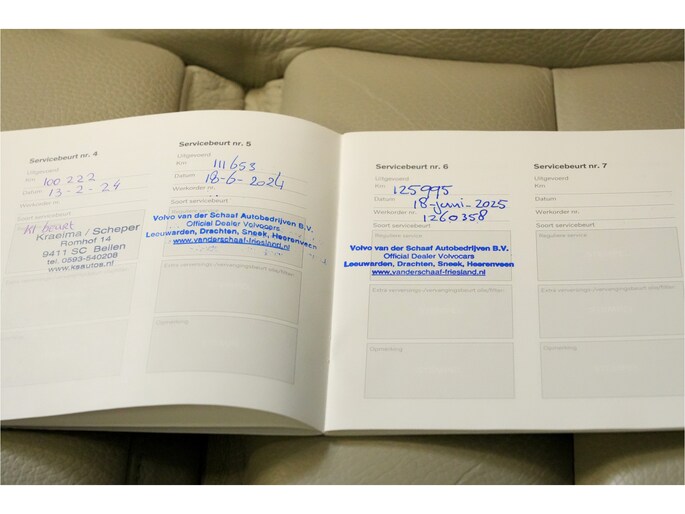 Servicebeurt nr. 4
Uitgevoerd
Km 100 222
Datum 13-2-24
Werkorder nr.
Soort servicebeurt
beurt
Kraeima / Scheper
Romhof 14
9411 SC Beilen
tel. 0593-540208
www.ksautos.nl
Servicebeurt nr. 5
Uitgevoerd
Km 111653
Datum 18-6-2024
Werkorder nr.
Soort servicebeurt
Volvo van der Schaaf Autobedrijven B.V.
Official Dealer Volvocars
Leeuwarden, Drachten, Sneek, Heerenveen
www.vanderschaaf-friesland.nl
Opmerking
Servicebeurt nr. 6
Uitgevoerd
Km 125995
Datum 18-juni-2025
Werkorder nr. 1260358
Soort servicebeurt
Reguliere service
Volvo van der Schaaf Autobedrijven B.V.
Official Dealer Volvocars
Leeuwarden, Drachten, Sneek, Heerenveen
www.vanderschaaf-friesland.nl
Opmerking
Servicebeurt nr. 7
Uitgevoerd
Km
Datum
Werkorder nr.
Soort servicebeurt
Reguliere service
Opmerking